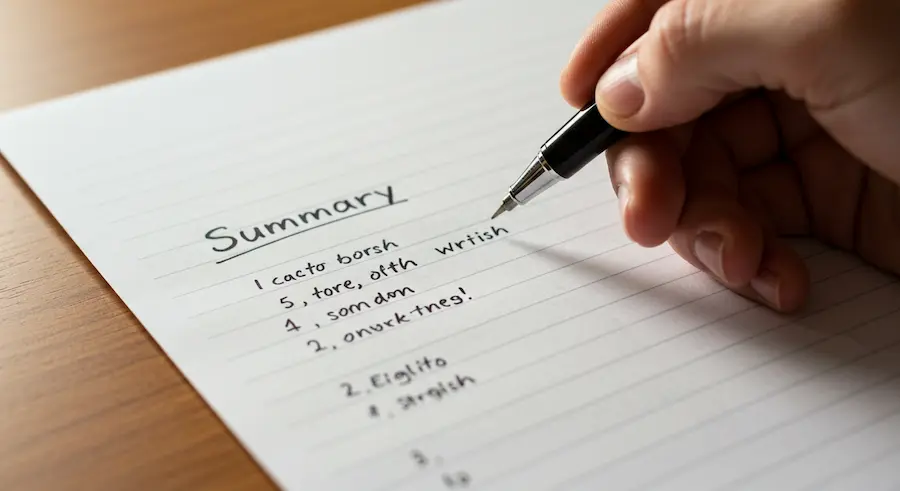 Summary
1 cacto borsh
5, tore, ofth wrtish
1, somdon
2, onvrk tneg!
2. Eiglito
1. strgish
2.